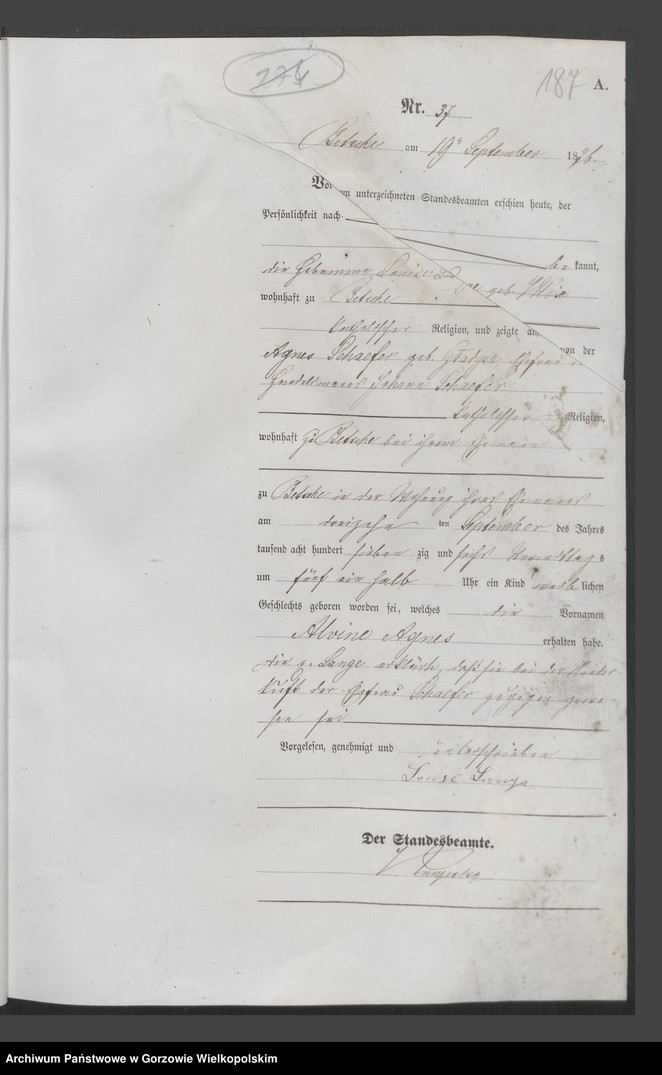 224
187 A.
Nr. 37
Betsche am 19n September 1876.
Vor dem unterzeichneten Standesbeamten erschien heute, der
Persönlichkeit nach
be kannt,
die Hebamme Louise geb.
wohnhaft zu Betsche
katholischer Religion, und zeigte an, von der
Agnes Schaefer geb. Ehefrau
Handelsmanns Johann Schaefer
katholischer Religion,
wohnhaft zu Betsche bei ihrem Ehemann
zu Betsche in der Wohnung ihres Ehemannes
am dreizehn ten September des Jahres
tausend acht hundert sieben zig und sechs Nachmittag s
um fünf ein halb Uhr ein Kind weib lichen
Geschlechts geboren worden sei, welches die Vornamen
Alvine Agnes erhalten habe.
die p. Lange erklärte, daß sie bei der Nieder
kunft der Ehefrau Schaefer zugegen gewe
sen sei
Vorgelesen, genehmigt und unterschrieben
Louise Lange
Der Standesbeamte.
Archiwum Państwowe w Gorzowie Wielkopolskim